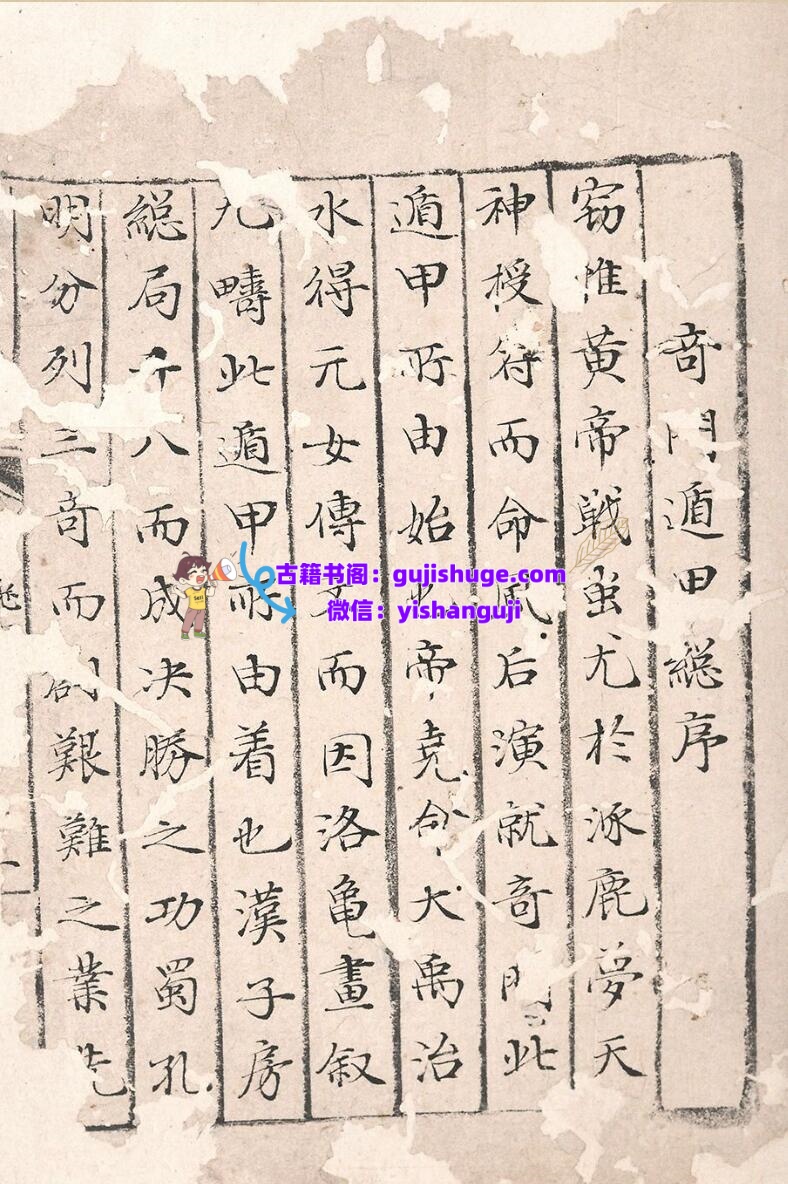 奇門遁甲総序
窈惟黄帝戦蚩尤於涿鹿夢天
神授符而命風后演就奇門此
遁甲所由始也帝堯命大禹治
水得元女傳文而因洛亀畫叙
九疇此遁甲所由着也漢子房
総局十八而成决勝之功蜀孔
明分列三奇而創艱難之業
古籍书阁：gujishuge.com
微信：yishanguji